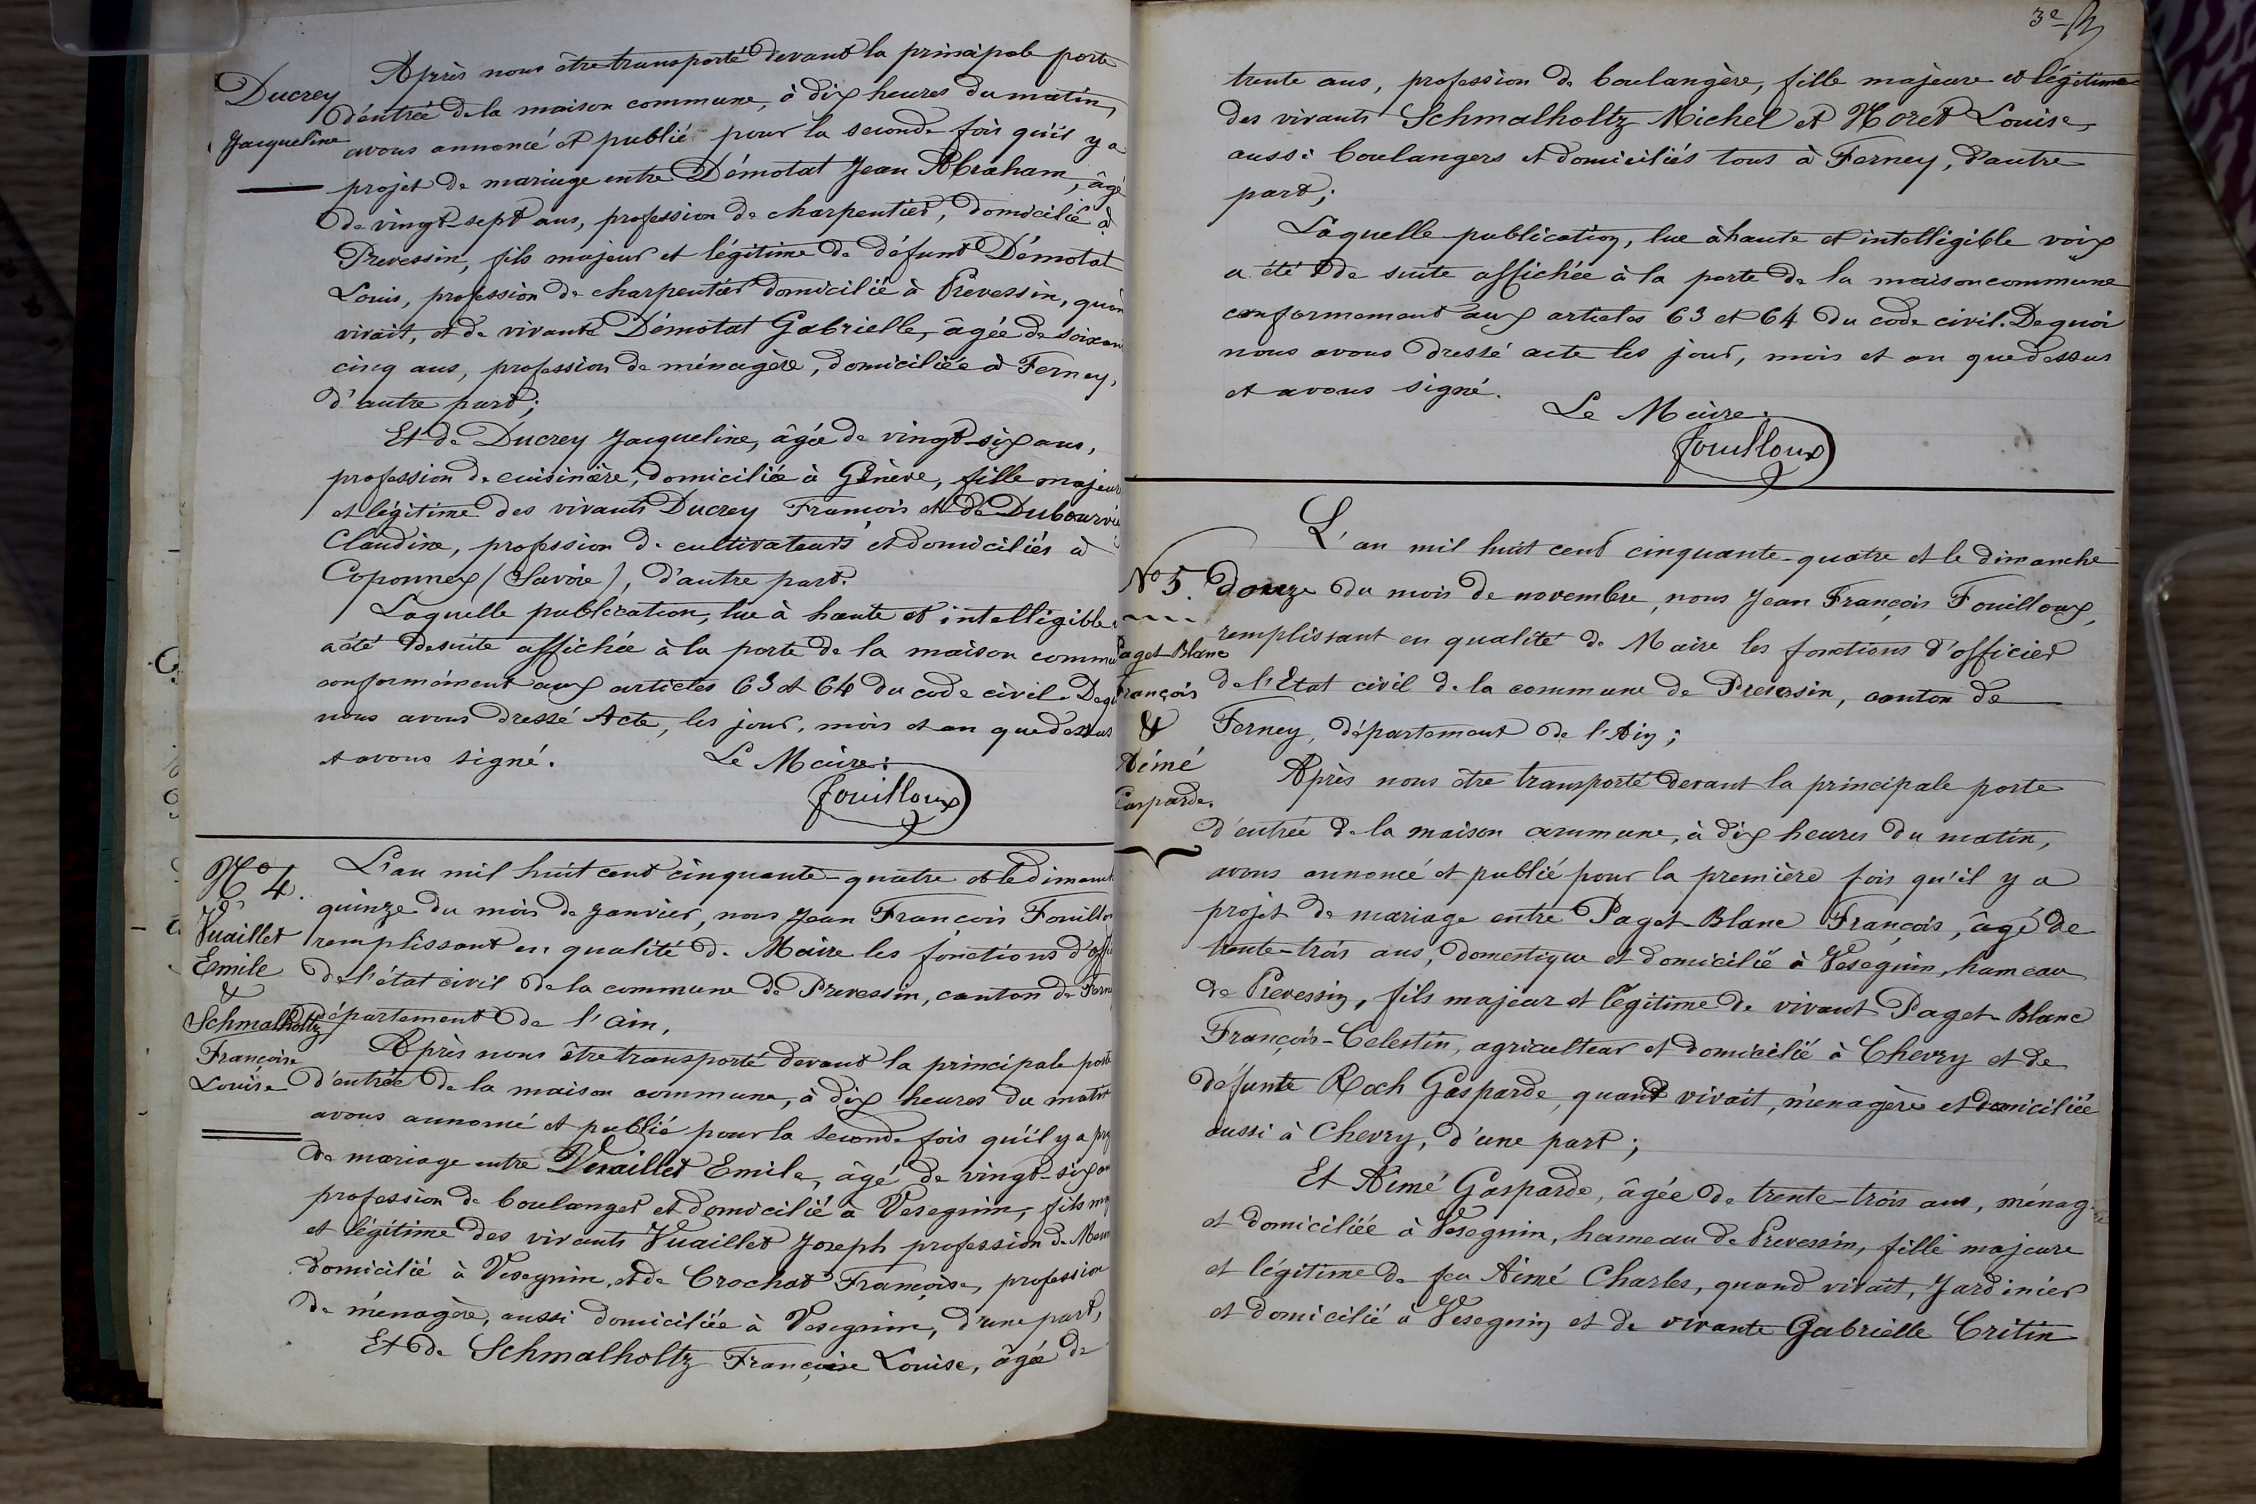 Ducrey
Jacqueline
Après nous être transporté devant la principale porte
d'entrée de la maison commune, à dix heures du matin,
avons annoncé et publié pour la seconde fois qu'il y a
projet de mariage entre Démotat Jean Abraham, âgé
de vingt-sept ans, profession de charpentier, domicilié à
Prevessin, fils majeur et légitime de défunt Démotat
Louis, profession de charpentier domicilié à Prevessin, quan
vivait, et de vivante Démotat Gabrielle, âgée de soixan
cinq ans, profession de ménagère, domiciliée à Ferney,
d'autre part;
Et de Ducrey Jacqueline, âgée de vingt-six ans,
profession de cuisinière, domiciliée à Génève, fille majeur
et légitime des vivants Ducrey François et de Dubourvie
Claudine, profession de cultivateurs et domiciliés à
Coponnex (Savoie), d'autre part.
Laquelle publication, lue à haute et intelligible
a été desuite affichée à la porte de la maison commu
conformément aux articles 63 et 64 du code civil. Dequ
nous avons dressé Acte, les jour, mois et an quedessus
et avons signé. Le Maire:
Fouilloux
No 4.
Vuaillet
Emile
&
Schmalholtz
Françoise
Louise
L'an mil huit cent cinquante-quatre et le dimanch
quinze du mois de janvier, nous Jean François Fouillou
remplissant en qualité de Maire les fonctions d'offi
de l'état civil de la commune de Prevessin, canton de Fern
département de l'ain,
Après nous être transporté devant la principale porte
d'entrée de la maison commune, à dix heures du matin
avons annoncé et publié pour la seconde fois qu'il y a proj
de mariage entre Vuaillet Emile, âgé de vingt-six an
profession de boulanger et domicilié à Vesegnin, fils maj
et légitime des vivants Vuaillet Joseph profession de Meun
domicilié à Vesegnin, et de Crochat Françoise, profession
de ménagère, aussi domiciliée à Vesegnin, d'une part,
Et de Schmalholtz Françoise Louise, âgée de
3e
trente ans, profession de boulangère, fille majeure et légitime
des vivants Schmalholtz Michel et Moret Louise,
aussi boulangers et domiciliés tous à Ferney, d'autre
part;
Laquelle publication, lue à haute et intelligible voix
a été de suite affichée à la porte de la maison commune
conformement aux articles 63 et 64 du code civil. De quoi
nous avons dressé acte les jour, mois et an que dessus
et avons signé.
Le Maire.
Fouilloux
No 5.
Paget-Blanc
François
&
Aimé
Gasparde.
L'an mil huit cent cinquante-quatre et le dimanche
douze du mois de novembre, nous Jean François Fouilloux,
remplissant en qualité de Maire les fonctions d'officier
de l'Etat civil de la commune de Prevessin, canton de
Ferney, département de l'Ain;
Après nous être transporté devant la principale porte
d'entrée de la maison commune, à dix heures du matin,
avons annoncé et publié pour la première fois qu'il y a
projet de mariage entre Paget-Blanc François, âgé de
trente-trois ans, domestique et domicilié à Vesegnin, hameau
de Prevessin, fils majeur et légitime de vivant Paget-Blanc
François-Celestin, agriculteur et domicilié à Chevry et de
défunte Roch Gasparde, quand vivait, ménagère et domiciliée
aussi à Chevry, d'une part;
Et Aimé Gasparde, âgée de trente-trois ans, ménag
et domiciliée à Vesegnin, hameau de Prevessin, fille majeure
et légitime de feu Aimé Charles, quand vivait, Jardinier
et domicilié à Vesegnin et de vivante Gabrielle Critin